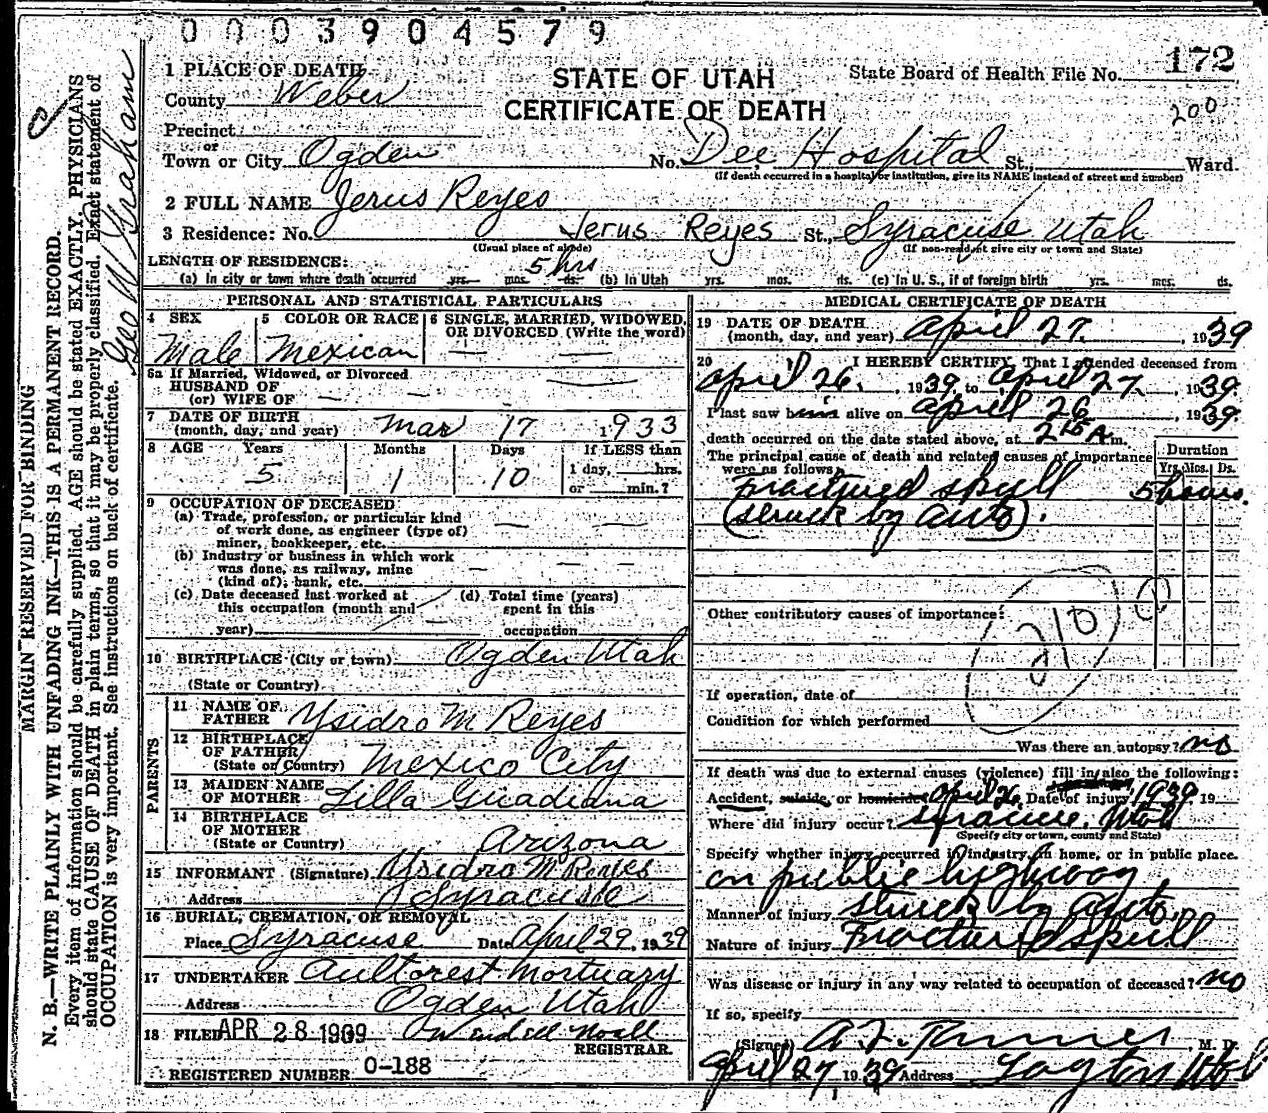 0003904579
172
STATE OF UTAH
CERTIFICATE OF DEATH
State Board of Health File No.
200
1 PLACE OF DEATH
County Weber
Precinct
or
Town or City Ogden No. Dee Hospital St., Ward.
(If death occurred in a hospital or institution, give its NAME instead of street and number)
2 FULL NAME Jerus Reyes
3 Residence: No. Jerus Reyes St., Syracuse Utah
(Usual place of abode) (If non-resident give city or town and State)
LENGTH OF RESIDENCE: 5 hrs
(a) In city or town where death occurred yrs. mos. ds. (b) In Utah yrs. mos. ds. (c) In U. S., if of foreign birth yrs. mos. ds.
PERSONAL AND STATISTICAL PARTICULARS
4 SEX 5 COLOR OR RACE 6 SINGLE, MARRIED, WIDOWED,
OR DIVORCED (Write the word)
Male Mexican — —
6a If Married, Widowed, or Divorced
HUSBAND OF
(or) WIFE OF — —
7 DATE OF BIRTH
(month, day, and year) Mar 17 1933
8 AGE Years Months Days If LESS than
5 1 10 1 day, hrs.
or min.?
9 OCCUPATION OF DECEASED
(a) Trade, profession, or particular kind
of work done, as engineer (type of)
miner, bookkeeper, etc. — —
(b) Industry or business in which work
was done, as railway, mine
(kind of); bank, etc. — —
(c) Date deceased last worked at (d) Total time (years)
this occupation (month and spent in this
year) occupation
10 BIRTHPLACE (City or town) Ogden Utah
(State or Country)
PARENTS
11 NAME OF
FATHER Ysidro M Reyes
12 BIRTHPLACE
OF FATHER
(State or Country) Mexico City
13 MAIDEN NAME
OF MOTHER Lilla Guadiana
14 BIRTHPLACE
OF MOTHER
(State or Country) Arizona
15 INFORMANT (Signature) Ysidro M Reyes
Address Syracuse
16 BURIAL, CREMATION, OR REMOVAL
Place Syracuse Date April 29, 1939
17 UNDERTAKER Aultorest Mortuary
Address Ogden Utah
18 FILED APR 28 1939 Wendell Noall
REGISTRAR.
REGISTERED NUMBER 0-188
MEDICAL CERTIFICATE OF DEATH
19 DATE OF DEATH
(month, day, and year) April 27, 1939
20 I HEREBY CERTIFY, That I attended deceased from
April 26, 1939, to April 27, 1939.
I last saw him alive on April 26, 1939.
death occurred on the date stated above, at 2 15 A m.
The principal cause of death and related causes of importance
were as follows:
Duration
Yrs. Mos. Ds.
Fractured skull 5 hours.
(struck by auto).
Other contributory causes of importance:
210 1
If operation, date of
Condition for which performed
Was there an autopsy? no
If death was due to external causes (violence) fill in also the following:
Accident, suicide, or homicide April 26 Date of injury 1939 19
Where did injury occur? Syracuse, Utah
(Specify city or town, county and State)
Specify whether injury occurred in industry, in home, or in public place.
on public highway,
Manner of injury struck by auto,
Nature of injury Fractured skull
Was disease or injury in any way related to occupation of deceased? no
If so, specify
(Signed) A. Z. Tanner M. D.
April 27, 1939 Address Layton Utah
MARGIN RESERVED FOR BINDING
N. B.—WRITE PLAINLY WITH UNFADING INK—THIS IS A PERMANENT RECORD.
Every item of information should be carefully supplied. AGE should be stated EXACTLY. PHYSICIANS
should state CAUSE OF DEATH in plain terms, so that it may be properly classified. Exact statement of
OCCUPATION is very important. See instructions on back of certificate.
Geo W Graham